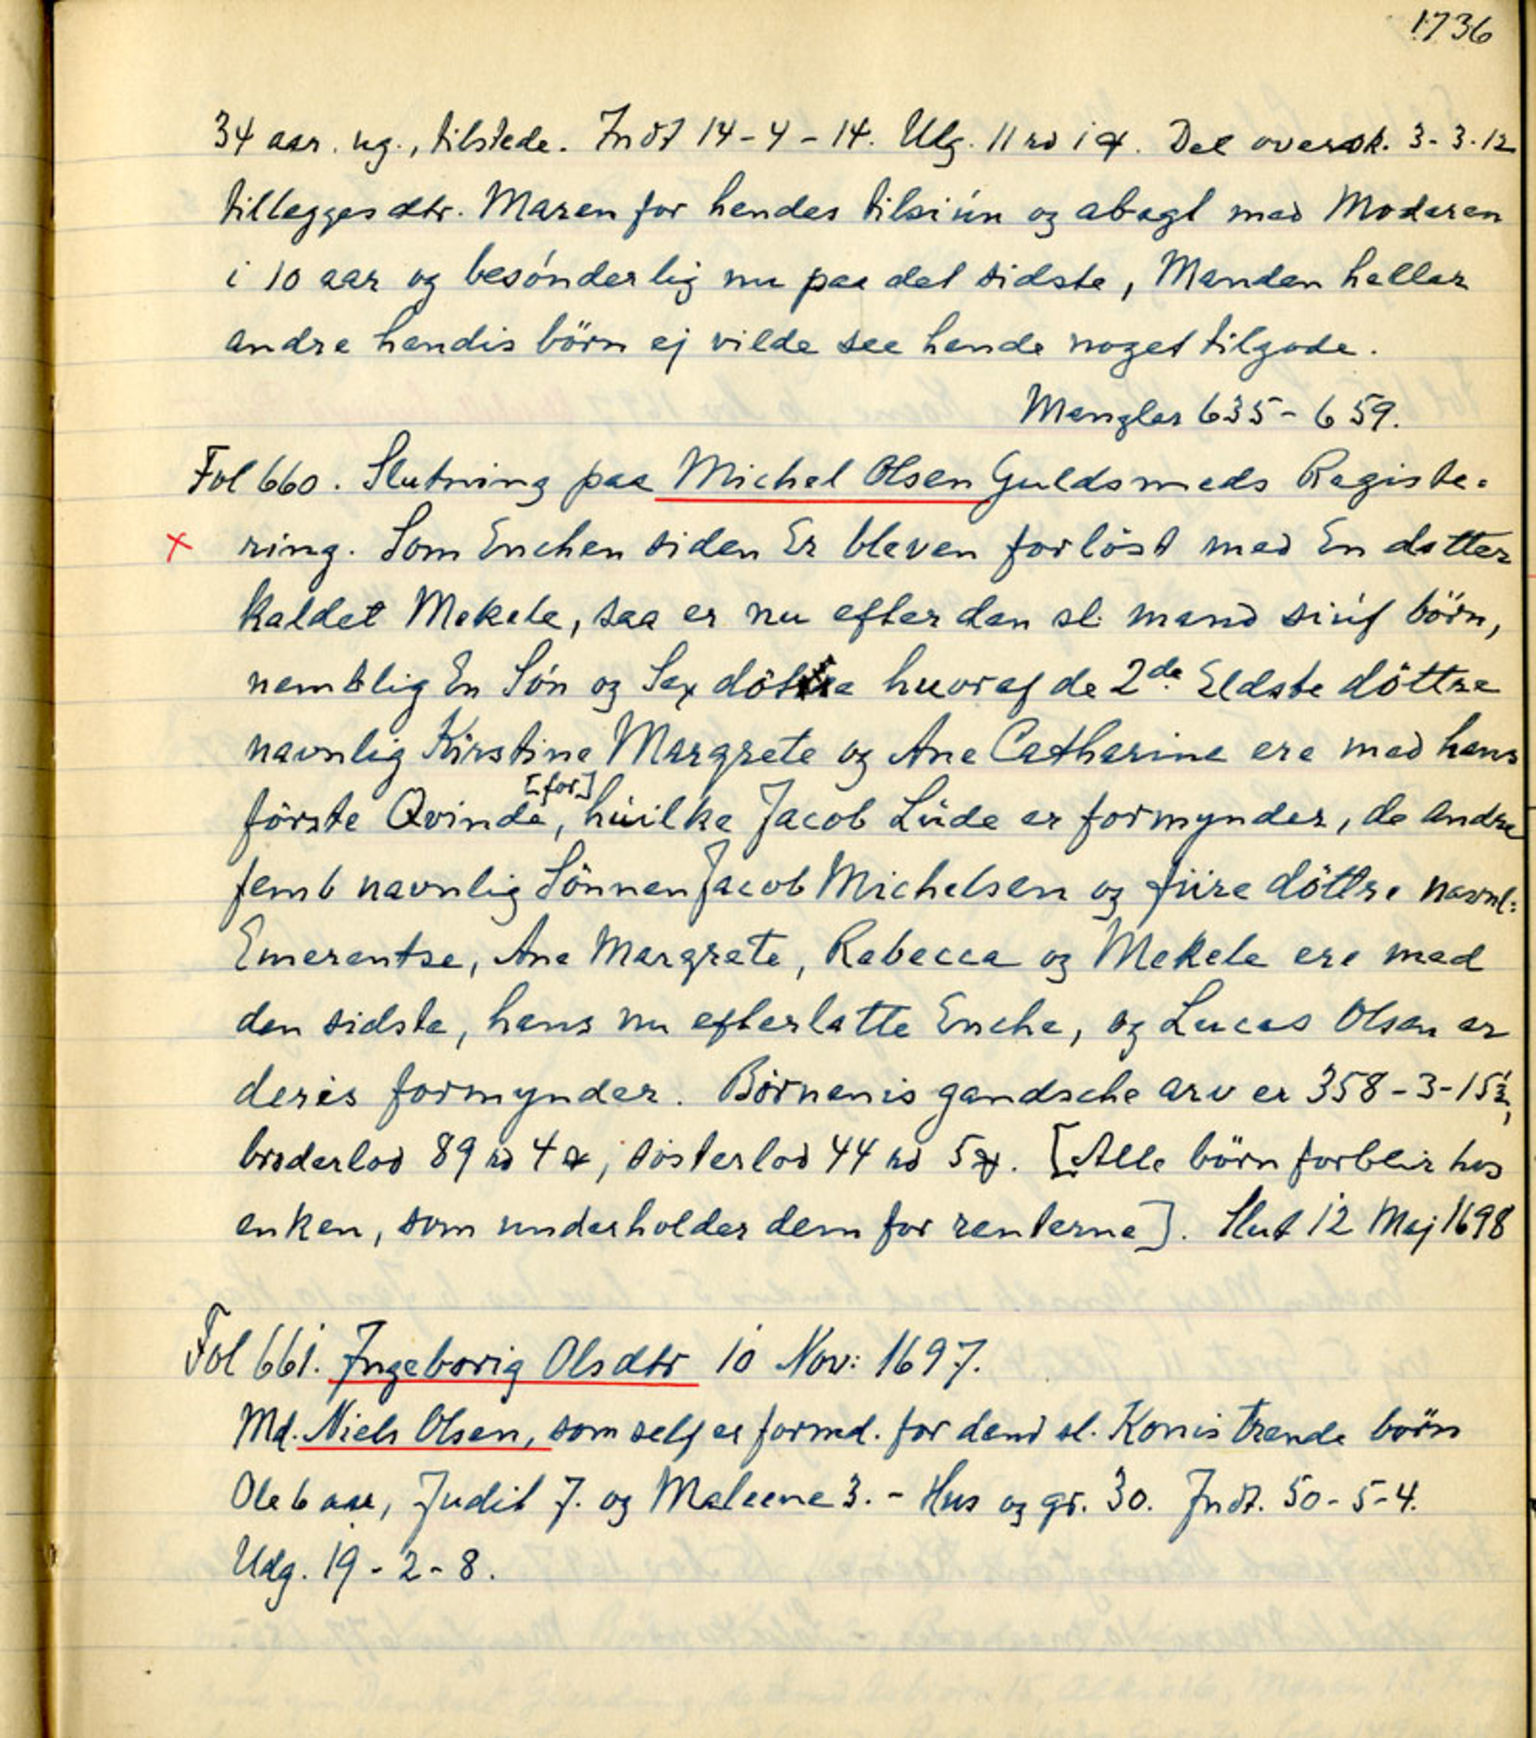 1736
34 aar. ug., tilstede. Indt 14-4-14. Utg. 11 rd 1 ort. Det oversk. 3-3-12
tillegges dtr. Maren for hendes tilsiún og abagt med Moderen
i 10 aar og besónderlig nu paa det sidste, Manden heller
andre hendis börn ej vilde see hende noget tilgode.
Mangler 635-659.
Fol 660. Slutning paa Michel Olsen Guldsmeds Registe-
x ring. Som Enchen siden Er bleven forlöst med En dotter
kaldet Mekele, saa er nu efter den sl. mand siúf börn,
nemblig En Són og Sex döttre huoraf de 2de Eldste döttre
navnlig Kirstine Margrete og Ane Catharine ere med hans
förste Qvinde, [for] húilke Jacob Lüde er formynder, de andre
femb navnlig Sönnen Jacob Michelsen og fiire döttre navnl:
Emerentse, Ane Margrete, Rebecca og Mekele ere med
den sidste, hans nu efterlatte Enche, og Lucas Olsen er
deris formynder. Börnenis gandsche arv er 358-3-15½,
broderlod 89 rd 4 ort, sösterlod 44 rd 5 ort. [Alle börn forblir hos
enken, som underholder dem for renterne]. Slut 12 Maj 1698
Fol 661. Ingeborig Olsdtr 10 Nov: 1697.
Md. Niels Olsen, som self er formd. for dend sl. Konis trende börn
Ole 6 aar, Judit 7. og Maleene 3. - Hus og gr. 30. Indt. 50-5-4.
Udg. 19-2-8.